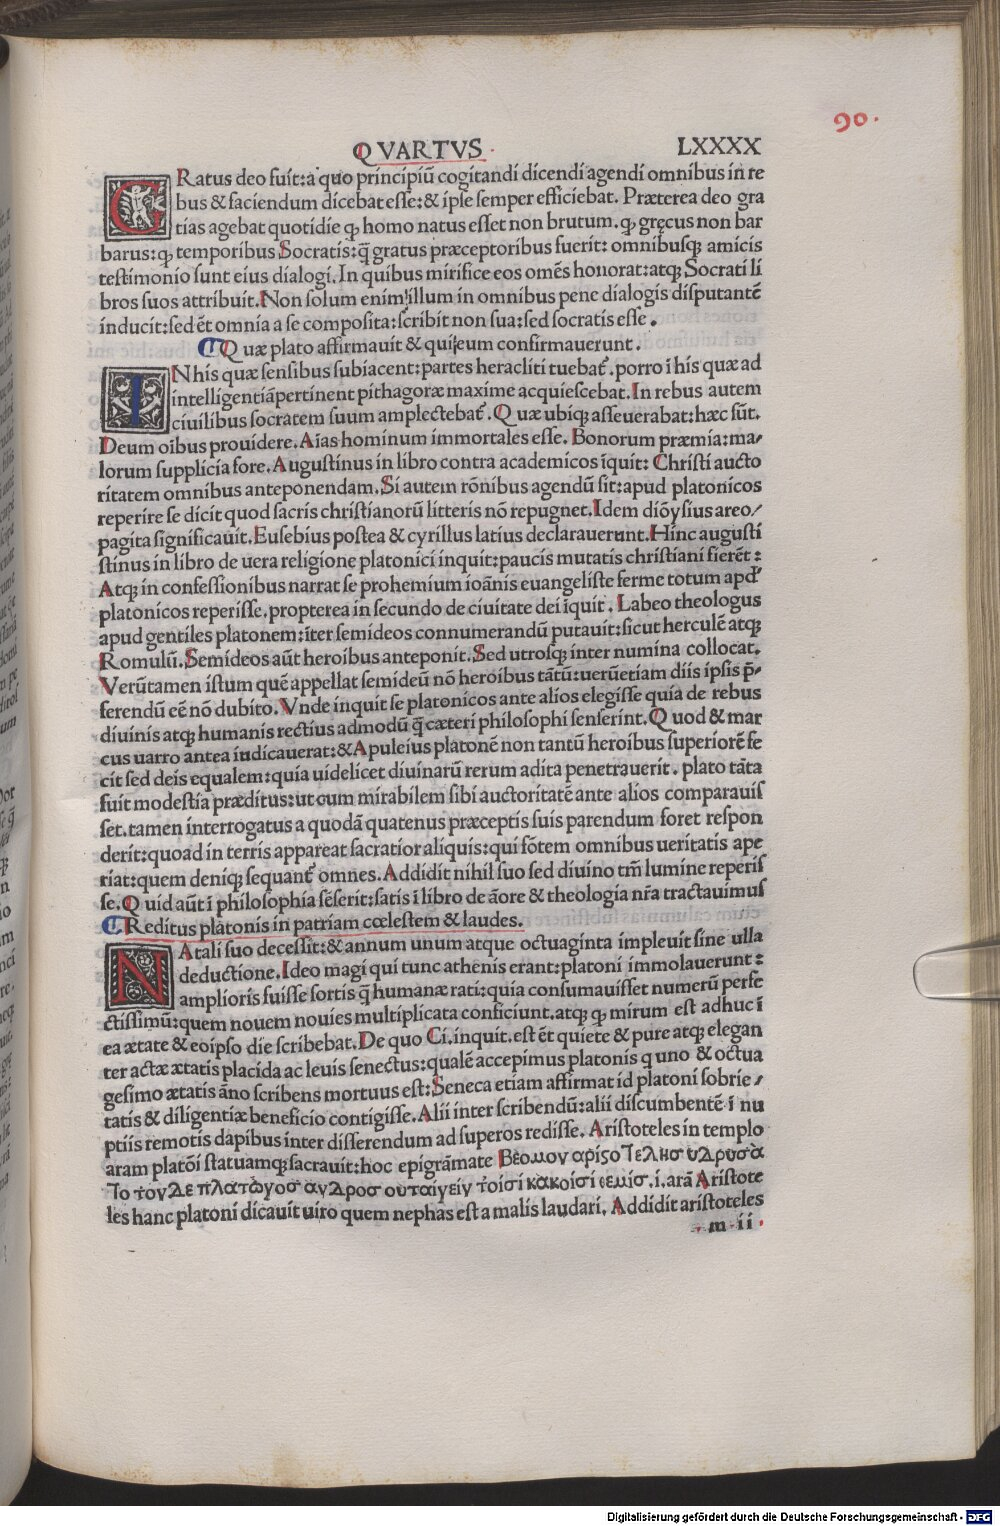 90.
QVARTVS LXXXX
GRatus deo fuit:a quo principiũ cogitandi dicendi agendi omnibus in re
bus & faciendum dicebat esse:& ipse semper efficiebat. Præterea deo gra
tias agebat quotidie ꝙ homo natus esset non brutum. ꝙ gręcus non bar
barus:ꝙ temporibus Socratis:q̃ gratus præceptoribus fuerit: omnibusq; amicis
testimonio sunt eius dialogi. In quibus mirifice eos omẽs honorat:atq; Socrati li
bros suos attribuit. Non solum enim illum in omnibus pene dialogis disputantẽ
inducit:sed ẽt omnia a se composita:scribit non sua:sed socratis esse.
Quæ plato affirmauit & qui eum confirmauerunt.
IN his quæ sensibus subiacent:partes heracliti tuebat̃. porro ĩ his quæ ad
intelligentiã pertinent pithagoræ maxime acquiescebat. In rebus autem
ciuilibus socratem suum amplectebat̃. Quæ ubiq; asseuerabat:hæc sũt.
Deum oĩbus prouidere. Aĩas hominum immortales esse. Bonorum præmia:ma/
lorum supplicia fore. Augustinus in libro contra academicos ĩquit: Christi aucto
ritatem omnibus anteponendam. Si autem rõnibus agendũ sit:apud platonicos
reperire se dicit quod sacris christianorũ litteris nõ repugnet. Idem diõysius areo/
pagita significauit. Eusebius postea & cyrillus latius declarauerunt. Hinc augusti
stinus in libro de uera religione platonici inquit:paucis mutatis christiani fierẽt:
Atq; in confessionibus narrat se prohemium ioãnis euangeliste ferme totum apđ
platonicos reperisse. propterea in secundo de ciuitate dei ĩquit. Labeo theologus
apud gentiles platonem:ĩter semideos connumerandũ putauit:sicut herculẽ atq;
Romulũ. Semideos aũt heroibus anteponit. Sed utrosq; inter numina collocat.
Verũtamen istum quẽ appellat semideũ nõ heroibus tãtũ:uerũetiam diis ipsis p̃/
ferendũ eẽ nõ dubito. Vnde inquit se platonicos ante alios elegisse quia de rebus
diuinis atq; humanis rectius admodũ q̃ cæteri philosophi senserint. Quod & mar
cus uarro antea iudicauerat:& Apuleius platonẽ non tantũ heroibus superiorẽ fe
cit sed deis equalem:quia uidelicet diuinarũ rerum adita penetrauerit. plato tãta
fuit modestia præditus:ut cum mirabilem sibi auctoritatẽ ante alios comparauis
set. tamen interrogatus a quodã quatenus præceptis suis parendum foret respon
derit:quoad in terris appareat sacratior aliquis:qui fõtem omnibus ueritatis ape
riat:quem deniq; sequant̃ omnes. Addidit nihil suo sed diuino tm̃ lumine reperis
se. Quid aũt ĩ philosophia sẽserit:satis ĩ libro de ãore & theologia nr̃a tractauimus
Reditus platonis in patriam cœlestem & laudes.
NAtali suo decessit:& annum unum atque octuaginta impleuit sine ulla
deductione. Ideo magi qui tunc athenis erant:platoni immolauerunt:
amplioris fuisse sortis q̃ humanæ rati:quia consumauisset numerũ perfe
ctissimũ:quem nouem nouies multiplicata conficiunt. atq; ꝙ mirum est adhuc ĩ
ea ætate & eo ipso die scribebat. De quo Ci. inquit. est ẽt quiete & pure atq; elegan
ter actæ ætatis placida ac leuis senectus:qualẽ accepimus platonis q uno & octua
gesimo ætatis ãno scribens mortuus est: Seneca etiam affirmat id platoni sobrie/
tatis & diligentiæ beneficio contigisse. Alii inter scribendũ:alii discumbentẽ ĩ nu
ptiis remotis dapibus inter disserendum ad superos redisse. Aristoteles in templo
aram platõi statuamq; sacrauit:hoc epigrãmate Βεομον αρίςο Τελησ υδρυσὰ
Το τόνΔε πλατωγοσ ανδροσ ουταίγείν τοίσί κακοίσί ιεμίσ. i. arã Aristote
les hanc platoni dicauit uiro quem nephas est a malis laudari. Addidit aristoteles
m ii
Digitalisierung gefördert durch die Deutsche Forschungsgemeinschaft - DFG